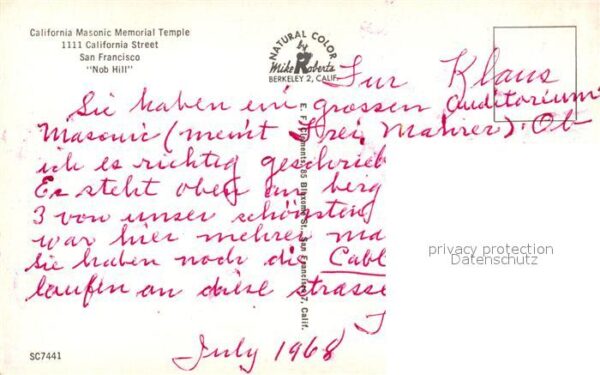 California Masonic Memorial Temple
1111 California Street
San Francisco
"Nob Hill"
NATURAL COLOR
by
Mike Roberts
BERKELEY 2, CALIF.
Fur Klaus
Sie haben ein grossen Auditorium
Masonic (meint Frei Mahrer). Ob
ich es richtig geschrieb
Es steht oben am berg
3 von unser schönsten
war hier mehrei ma
Sie haben noch die Cabl
laufen an diese strasse
July 1968
E. F. Clements, 85 Bluxome St., San Francisco 7, Calif.
SC7441
privacy protection
Datenschutz